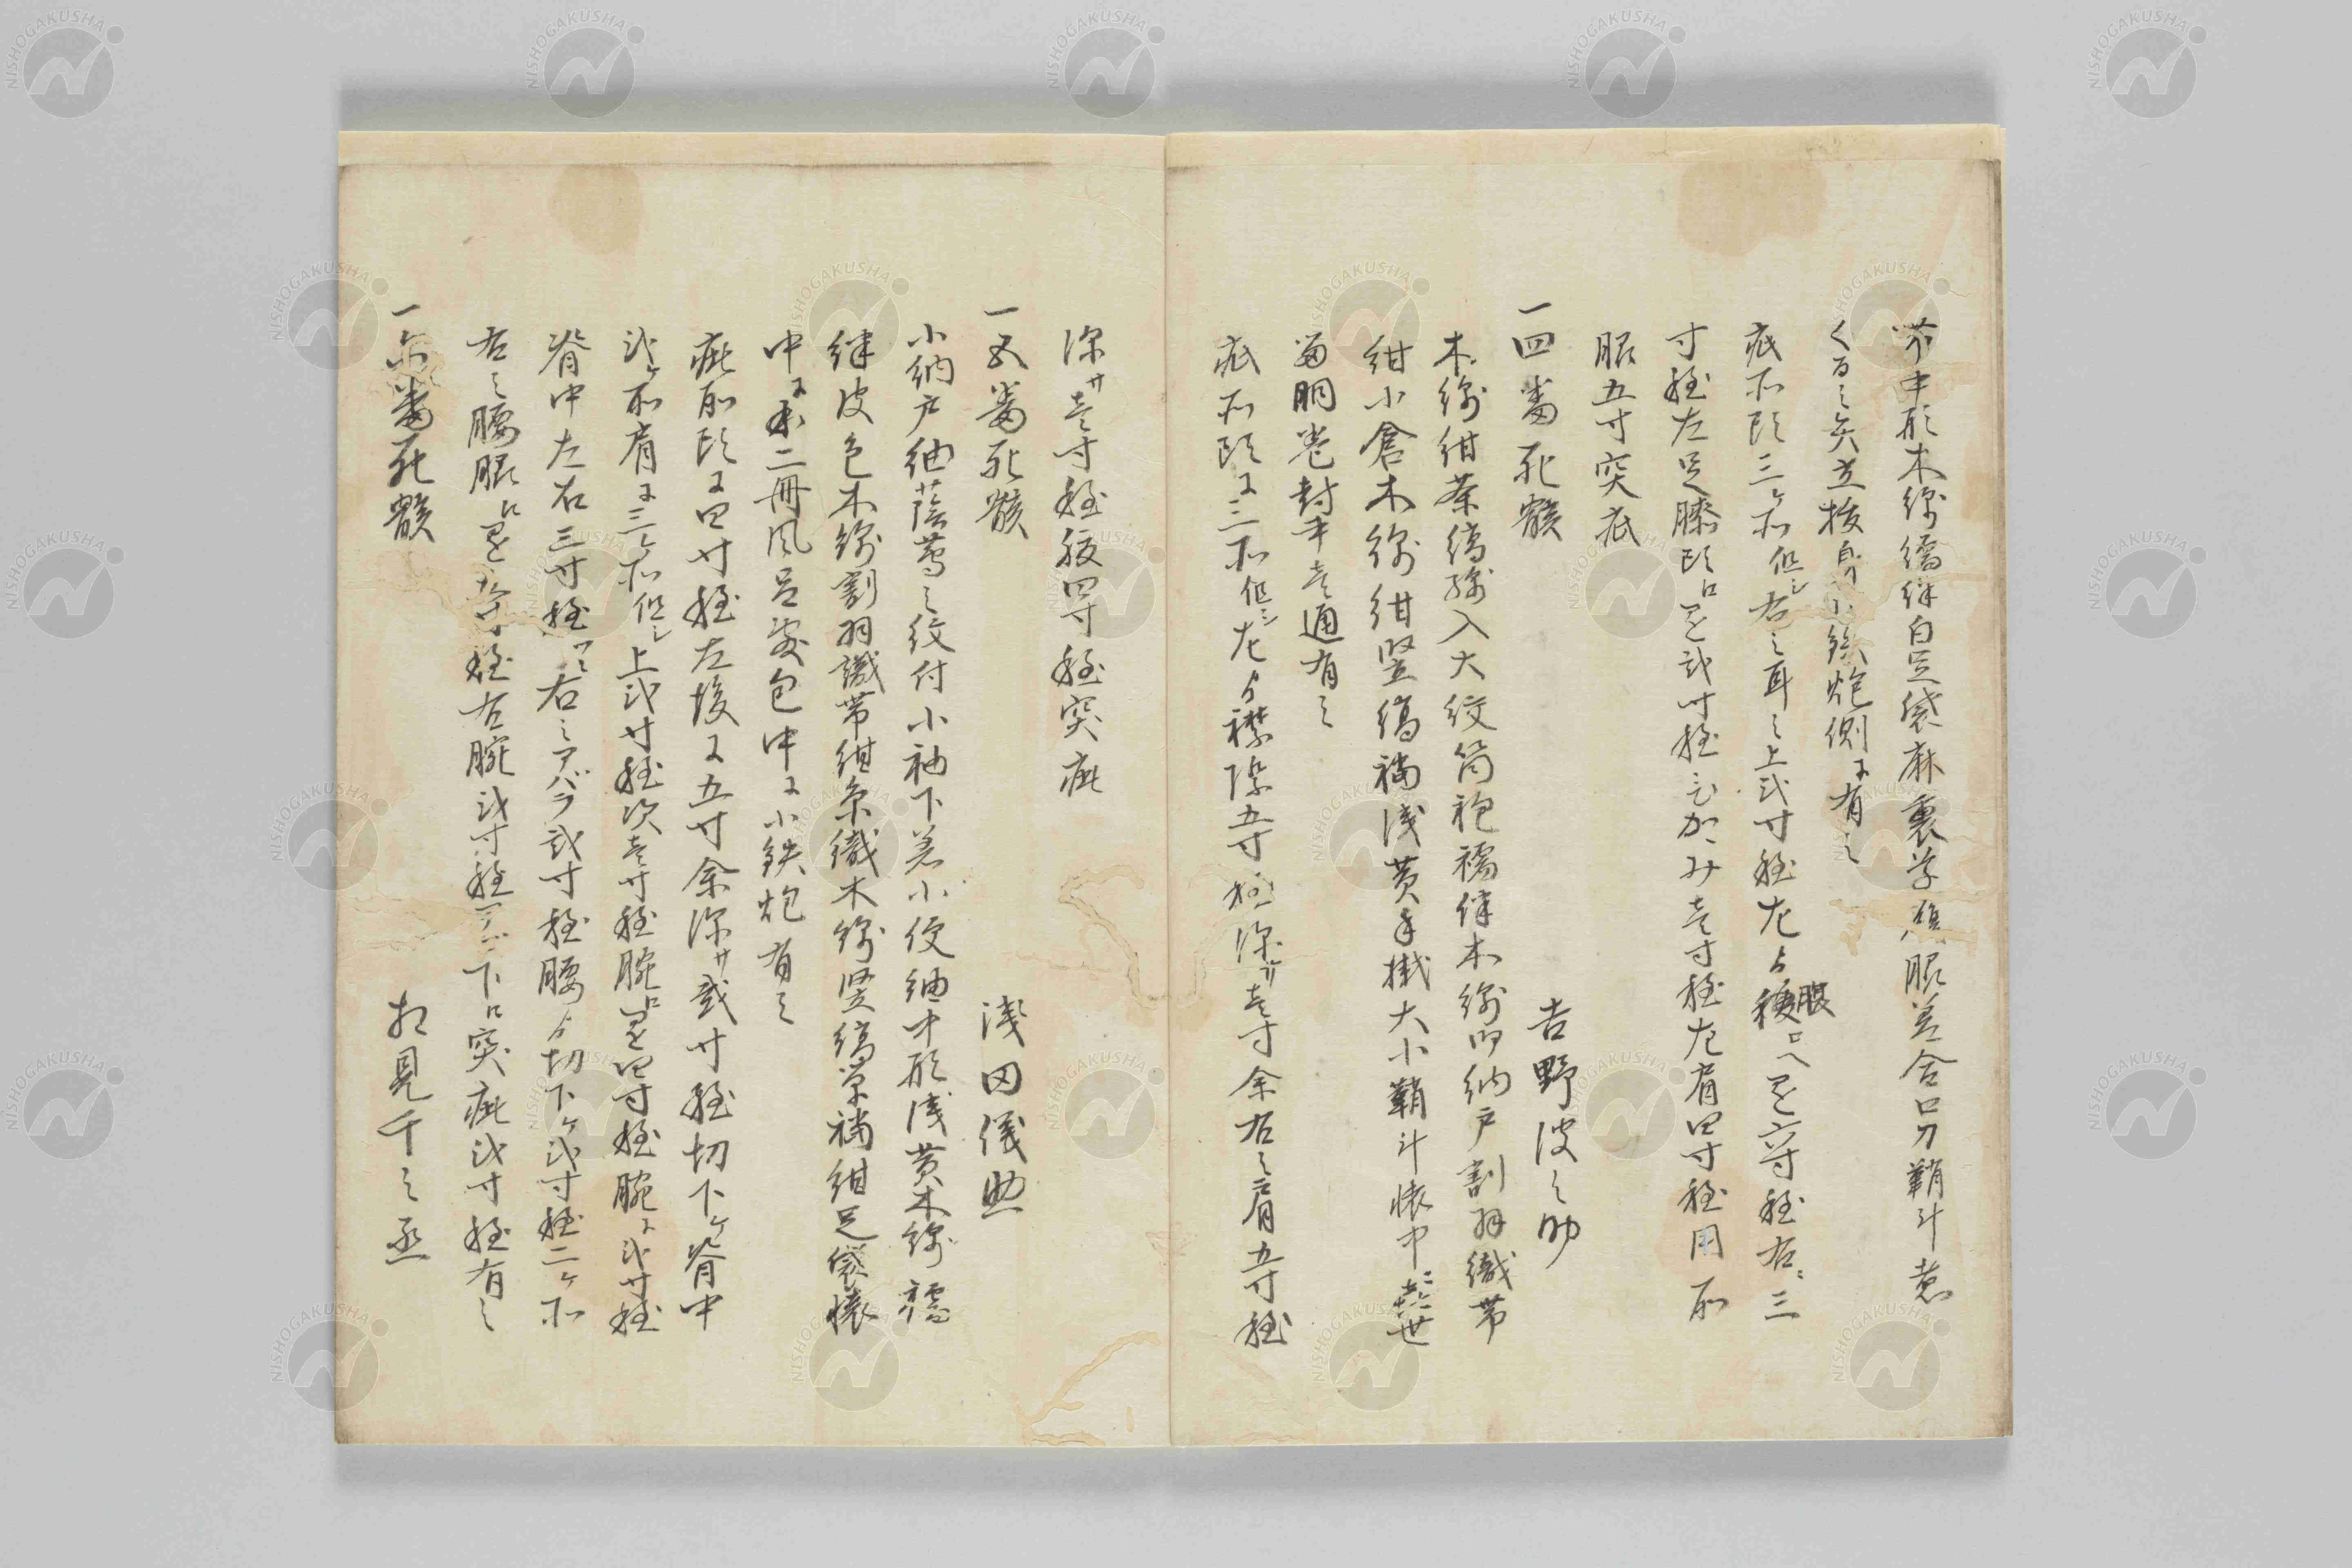 中形木綿襦袢白足袋麻裏草履脇差合口刀鞘斗惣
くるミ之矢立抜身小鉄炮側ニ有之
疵所頭三ケ所但シ右之耳之上弐寸程左ゟ腰口へ足を六寸程右ニ三
寸程左足膝頭口足を弐寸程ひかゝみ壱寸程左肩四寸程用所
脇五寸突疵
一四番死骸 吉野波之助
木綿紺茶縞綿入大紋筒袍襦袢木綿御納戸割羽織帯
紺小倉木綿紺竪縞袴浅黄手掛大小鞘斗懐中ニ
番胴巻封中壱通有之
疵所頭ニ三所但シ左ゟ襟際五寸程深サ壱寸余右之肩五寸程
深サ壱寸程腹四寸程突疵
一五番死骸 浅田儀助
小納戸紬蔭蔦之紋付小袖下着小倹紬中形浅黄木綿襦
袢皮色木綿割羽織帯紺糸織木綿竪縞単袴紺足袋懐
中ニ本二冊風呂敷包中ニ小鉄炮有之
疵所頭ニ四寸程左後ニ五寸余深サ弐寸程切下ケ脊中
弐ケ所肩ニ三ケ所但シ上弐寸程次壱寸程腕口足を四寸程腕ニ弐寸程
脊中左右三寸程ツヽ右之アバラ弐寸程腰ゟ切下ケ弐寸程二ケ所
右之腰眼口足を五寸程右腕弐寸程下口突疵弐寸程有之
一六番死骸 相見千之丞